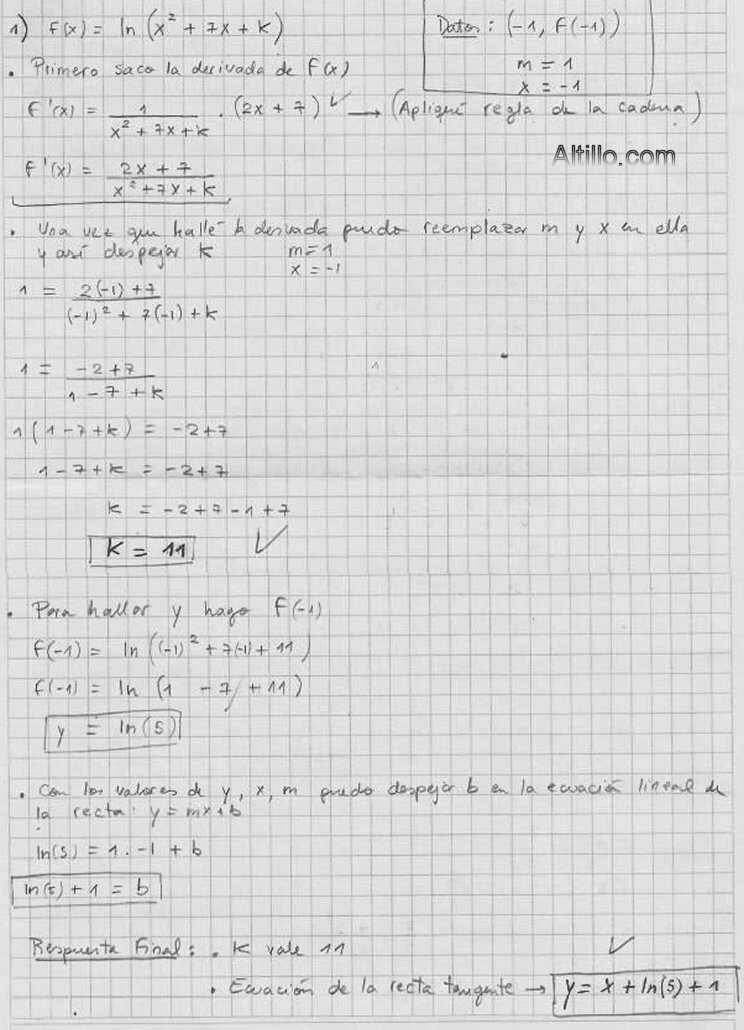 1) F(x) = ln (x² + 7x + k)
Datos: (-1, F(-1))
m = 1
x = -1
• Primero saco la derivada de F(x)
F'(x) = 1 / (x² + 7x + k) . (2x + 7) ✓ → (Apliqué regla de la cadena)
Altillo.com
F'(x) = (2x + 7) / (x² + 7x + k)
• Una vez que hallé la derivada puedo reemplazar m y x en ella
y así despejar k m = 1
x = -1
1 = (2(-1) + 7) / ((-1)² + 7(-1) + k)
1 = (-2 + 7) / (1 - 7 + k)
1(1 - 7 + k) = -2 + 7
1 - 7 + k = -2 + 7
k = -2 + 7 - 1 + 7
k = 11 ✓
• Para hallar y hago F(-1)
F(-1) = ln ((-1)² + 7(-1) + 11)
F(-1) = ln (1 - 7 + 11)
y = ln(5)
• Con los valores de y, x, m puedo despejar b en la ecuación lineal de
la recta: y = mx + b
ln(5) = 1 . -1 + b
ln(5) + 1 = b
Respuesta Final: • k vale 11 ✓
• Ecuación de la recta tangente → y = x + ln(5) + 1